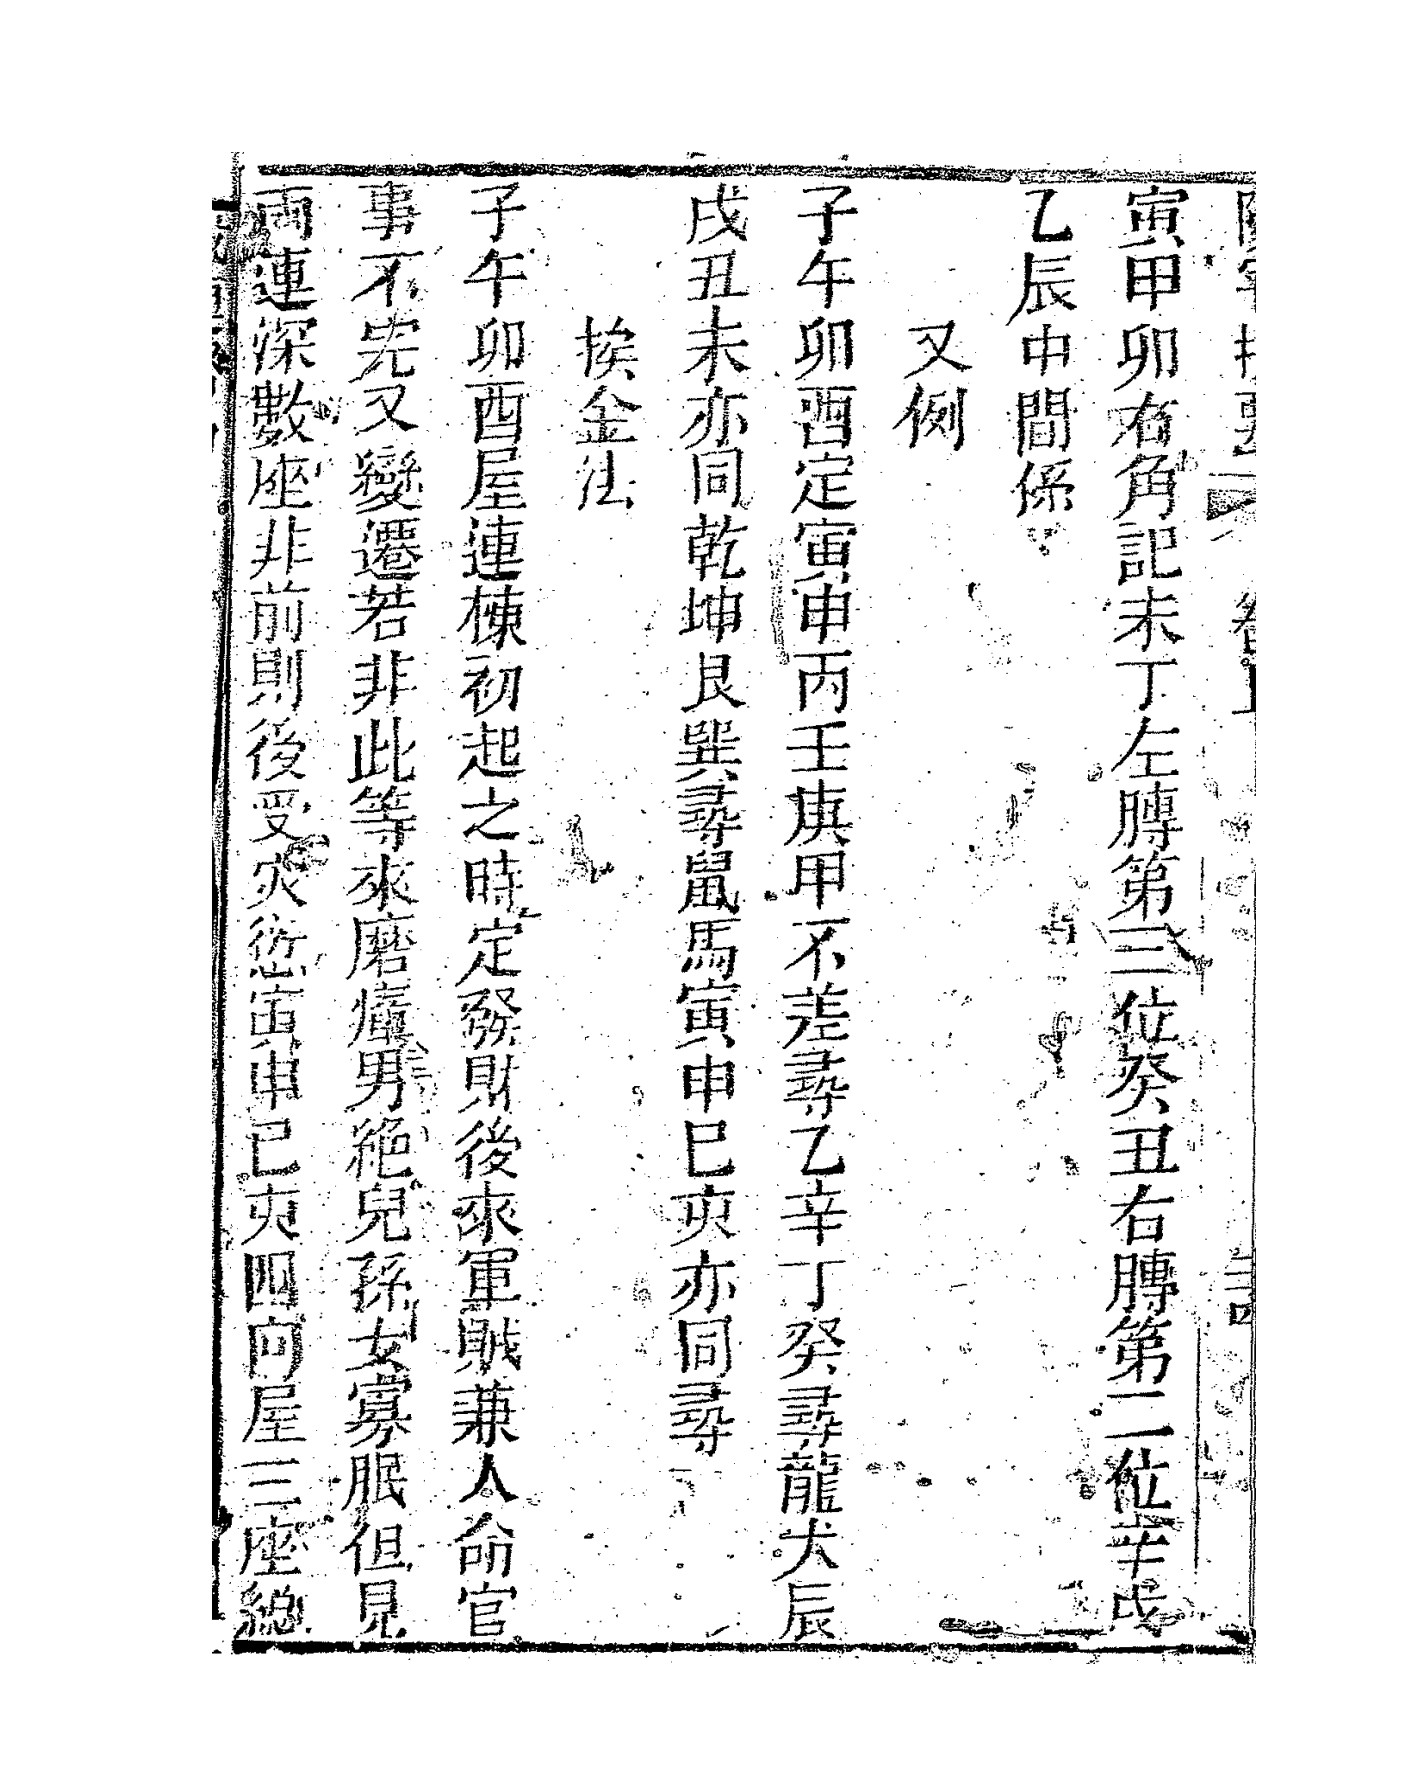 寅甲卯右角記未丁左膊第三位癸丑右膊第二位辛戌
乙辰中間係
又例
子午卯酉定寅申丙壬庚甲不差尋乙辛丁癸尋龍犬辰
戌丑未亦同乾坤艮巽尋鼠馬寅申巳亥亦同尋
挨金法
子午卯酉屋連棟初起之時定發財後來軍賊兼人命官
事不完又變遷若非此等來磨㿈男絶兒孫女寡眠但見
兩連深數座非前則後受灾愆寅申巳亥四向屋三座總